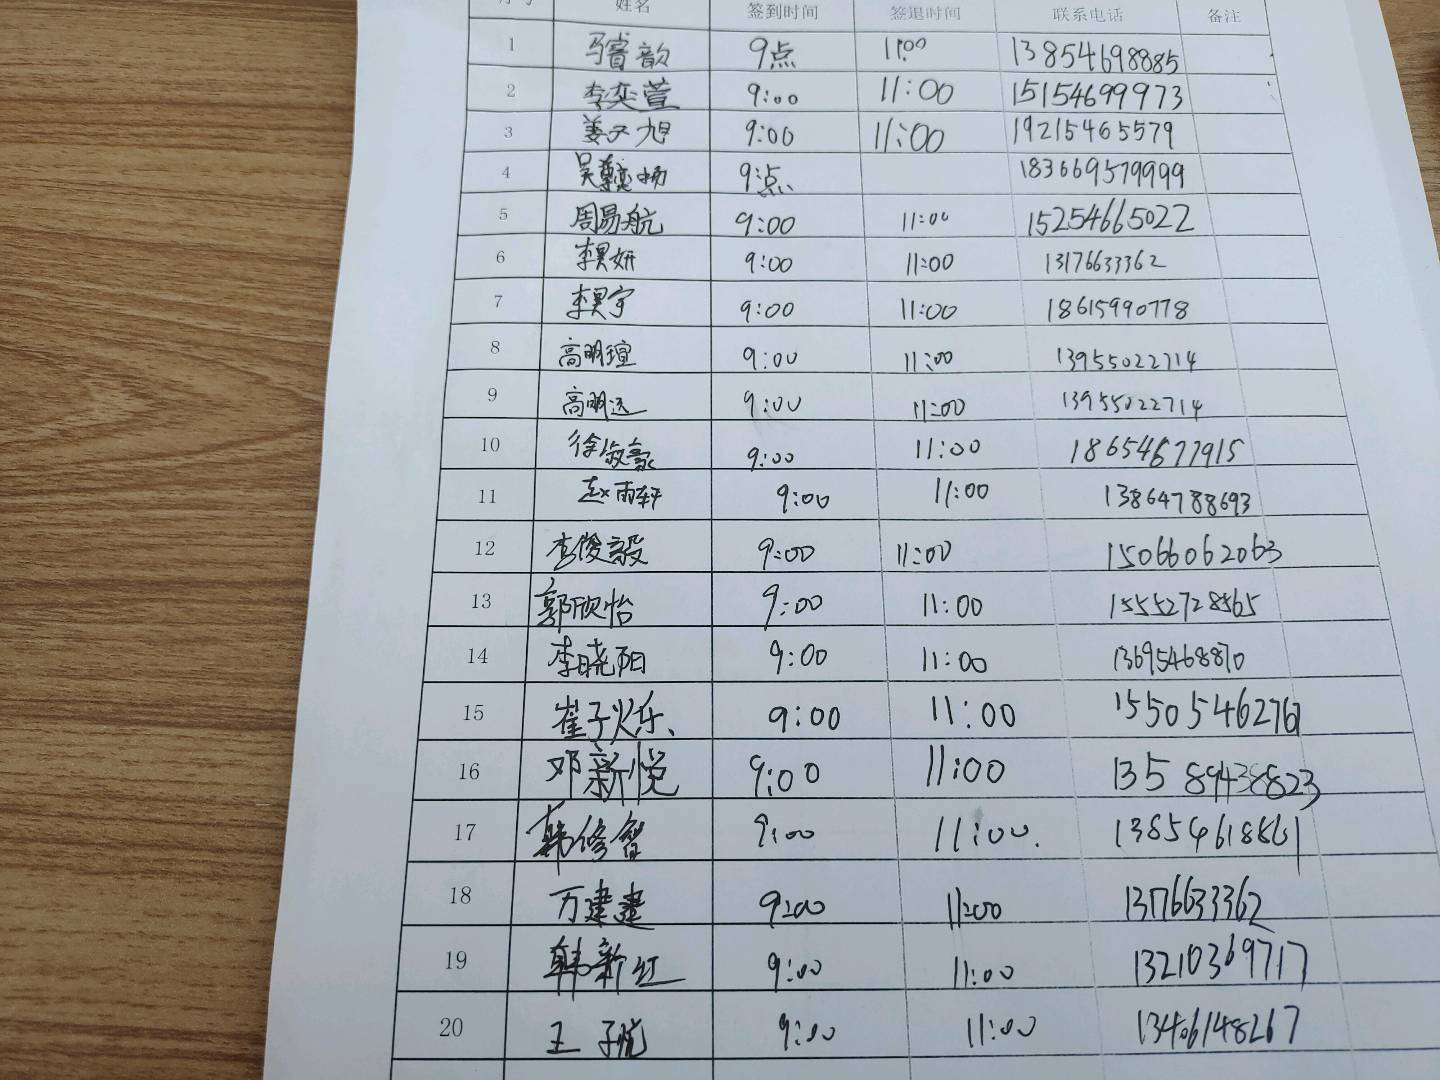 序号 姓名 签到时间 签退时间 联系电话 备注
1 马睿韵 9点 11:00 13854698885
2 李奕萱 9:00 11:00 15154699973
3 姜又旭 9:00 11:00 19215465579
4 吴 扬 9:点 183669579999
5 周易航 9:00 11:00 15254665022
6 李昊妍 9:00 11:00 13176633362
7 李昊宇 9:00 11:00 18615990778
8 高明瑄 9:00 11:00 13955022714
9 高明远 9:00 11:00 13955022714
10 徐俊豪 9:00 11:00 18654677915
11 赵雨轩 9:00 11:00 13864788693
12 李俊毅 9:00 11:00 15066062063
13 郭欣怡 9:00 11:00 15552728565
14 李晓阳 9:00 11:00 13695468870
15 崔子烁 9:00 11:00 15505462767
16 邓新悦 9:00 11:00 13589438823
17 韩修智 9:00 11:00. 13854618561
18 万建建 9:00 11:00 13176633362
19 韩新红 9:00 11:00 13210369717
20 王子悦 9:00 11:00 13406148267